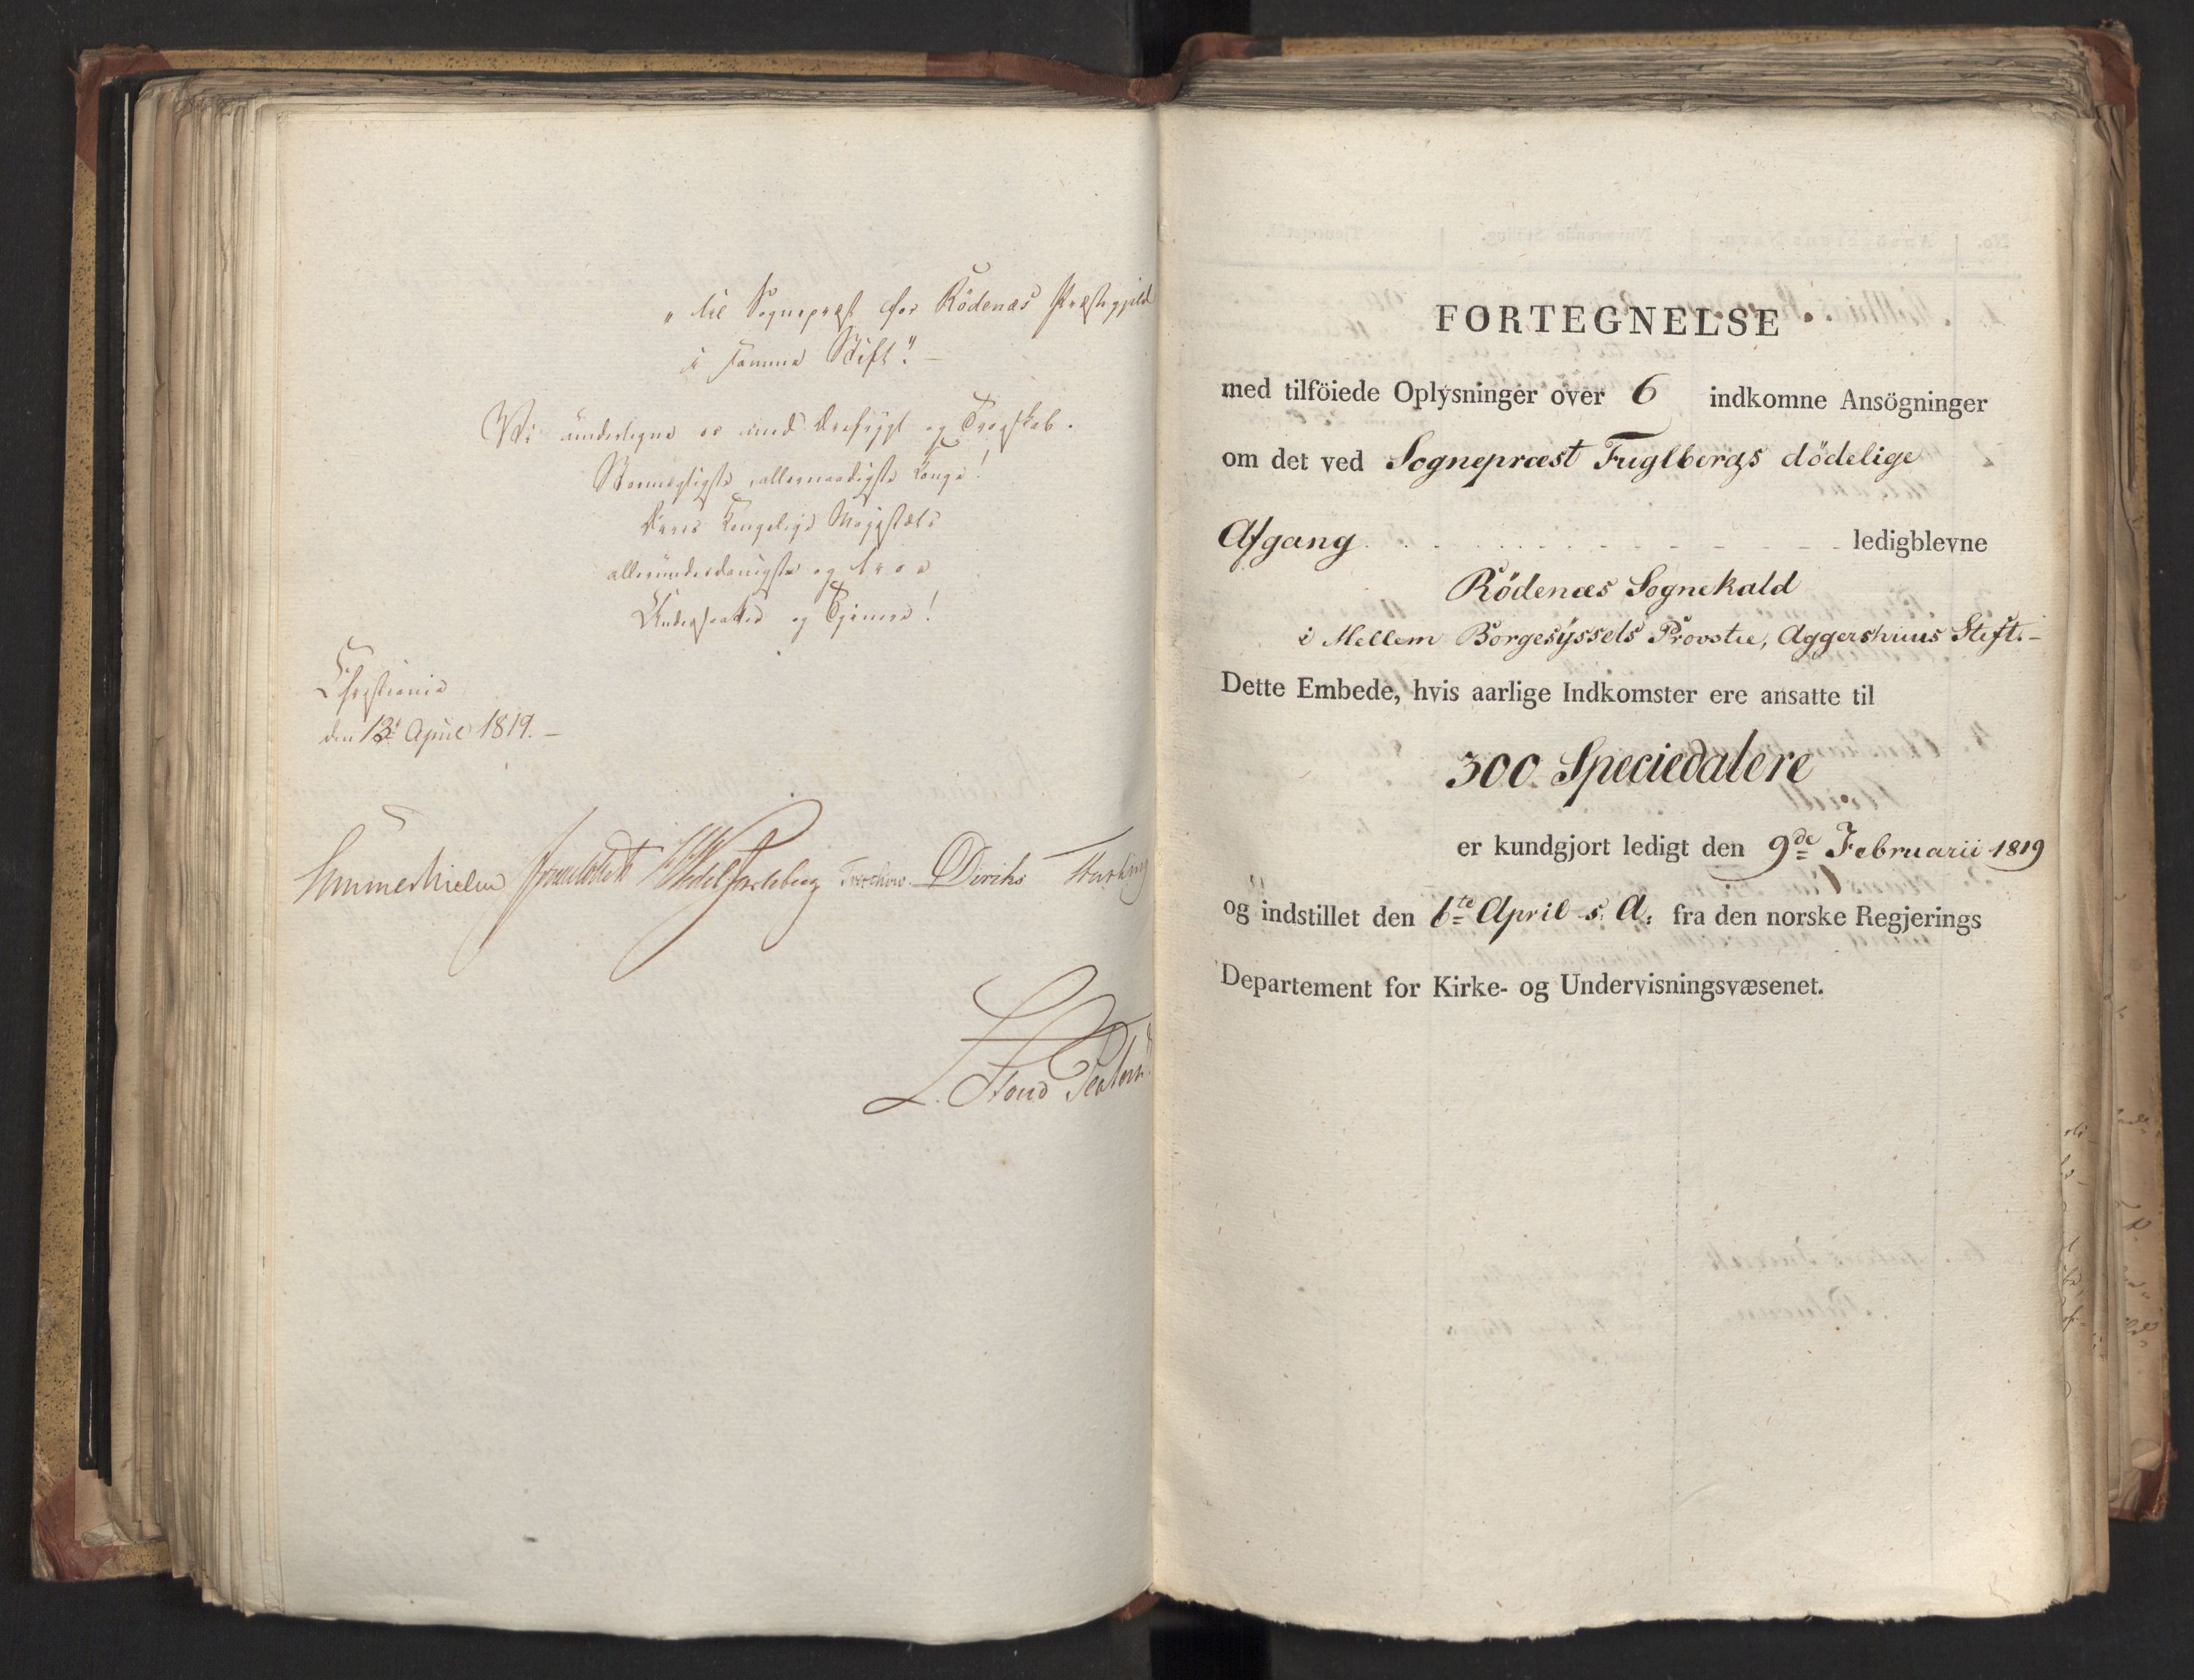 „ til Sognepræst for Rödenæs Præstegjeld
i samme Stift". —
Vi undertegne os med Ærefrygt og Troskab.
Stormægtigste, allernaadigste Konge!
Deres Kongelige Majestæts
allerunderdanigste og troe
Undersaatter og Tjenere!
Christiania
den 13de April 1819. —
Sommerhielm Wedel Jarlsberg Treschow. Diriks
FORTEGNELSE
med tilföiede Oplysninger over 6 indkomne Ansögninger
om det ved Sognepræst Fuglbergs dödelige
Afgang ledigblevne
Rödenæs Sognekald
i Mellem Borgesÿssels Provstie, Aggershuus Stift. —
Dette Embede, hvis aarlige Indkomster ere ansatte til
300. Speciedalere
er kundgjort ledigt den 9de Februarii 1819
og indstillet den 6te April s. A. fra den norske Regjerings
Departement for Kirke- og Undervisningsvæsenet.